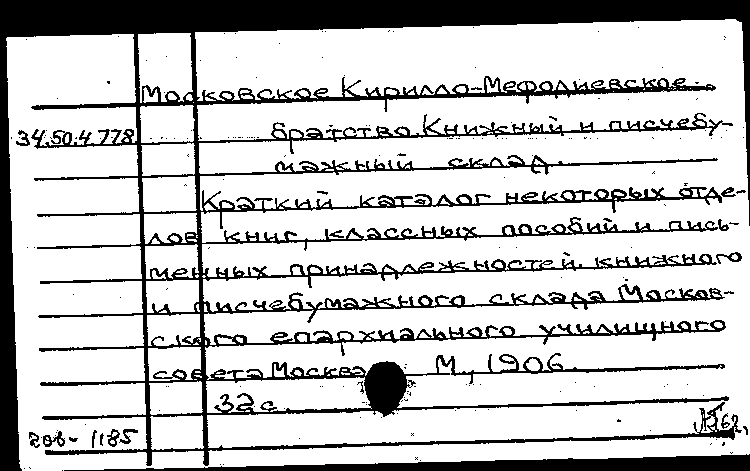 Московское Кирилло-Мефодиевское
34.50.4.778 братство. Книжный и писчебу-
мажный склад.
Краткий каталог некоторых отде-
лов книг, классных пособий и пись-
менных принадлежностей книжного
и писчебумажного склада Москов-
ского епархиального училищного
совета Москва М., 1906.
32 с.
208-1185